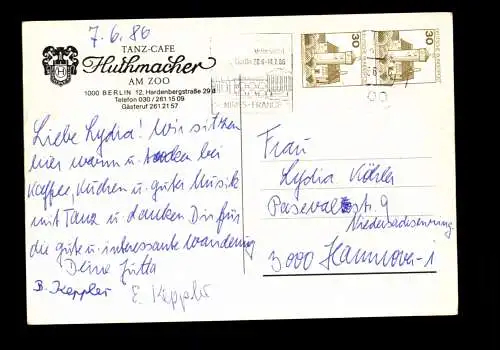 7.6.86
TANZ-CAFE
Huthmacher
AM ZOO
1000 BERLIN 12, Hardenbergstraße 29d
Telefon 030/261 15 09
Gästeruf 261 21 57
Liebe Lydia! Wir sitzen
hier warm u. bei
Kaffee, Kuchen u. guter Musik
mit Tanz u. danken Dir für
die gute u. interessante Wanderung
Deine Jutta
B. Keppler E. Keppler
NIMES-FRANCE
30
30
Frau
Lydia Köhler
Pasewalkstr. 9
Niedersachsenring
3000 Hannover-1